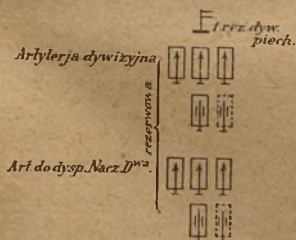 1 rez. dyw.
piech.
Artylerja dywizyjna
rezerwowa
Art. do dysp. Nacz. Dwa.